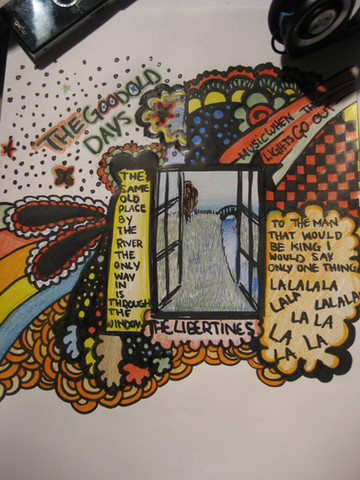 THE GOOD OLD
DAYS
MUSIC WHEN THE
LIGHTS GO OUT
THE
SAME
OLD
PLACE
BY
THE
RIVER
THE
ONLY
WAY
IN
IS
THROUGH
THE
WINDOW
TO THE MAN
THAT WOULD
BE KING I
WOULD SAY
ONLY ONE THING
LA LA LA LA
LA LA LA LA LA
LA LA
LA LA
LA
THE LIBERTINES